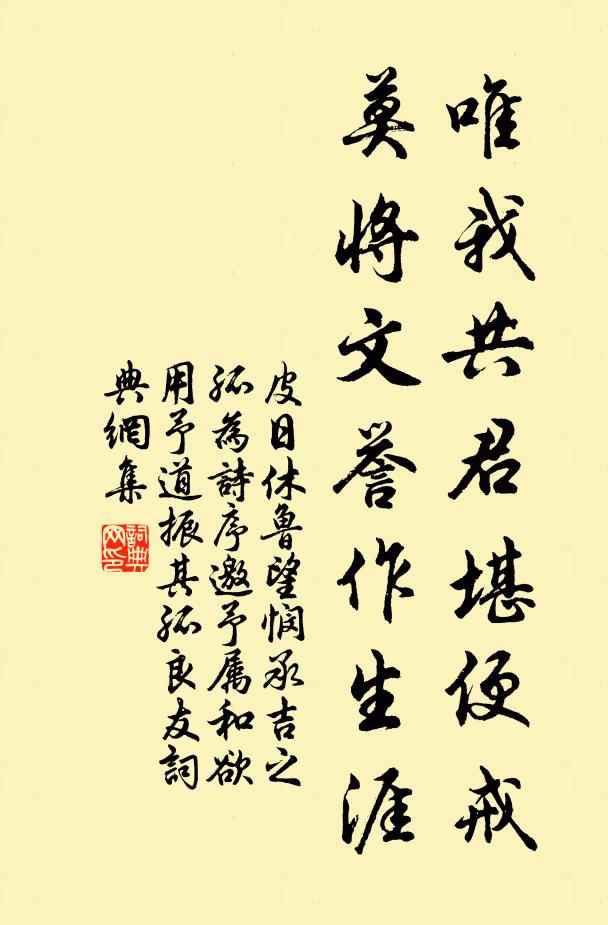 唯我共君堪便戒
莫將文譽作生涯
皮日休魯望憫承吉之
孤為詩序邀予属和欲
用予道振其孤良友詞
典網集
詞典
网印